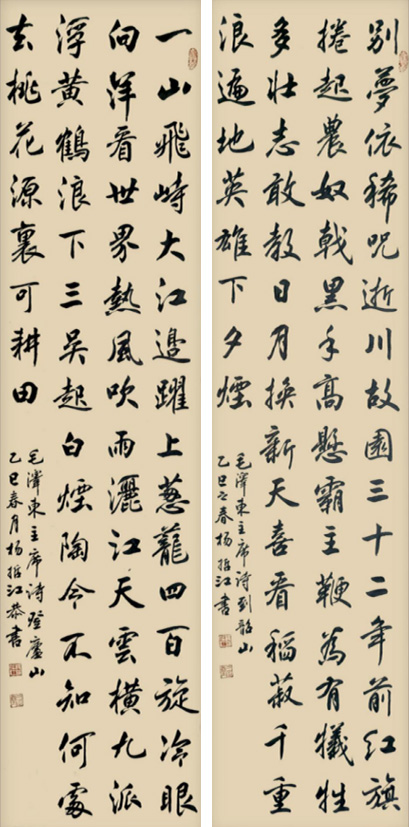 别夢依稀咒逝川故園三十二年前紅旗
捲起農奴戟黑手高懸霸主鞭為有犧牲
多壯志敢教日月換新天喜看稻菽千重
浪遍地英雄下夕煙
毛澤東主席詩到韶山
乙巳之春楊哲江書
一山飛峙大江邊躍上蔥蘢四百旋冷眼
向洋看世界熱風吹雨灑江天雲橫九派
浮黃鶴浪下三吳起白煙陶令不知何處
去桃花源裏可耕田
毛澤東主席詩登廬山
乙巳春月楊哲江恭書